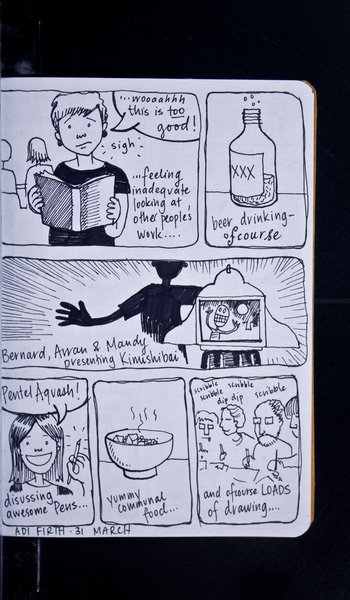 ...wooaahhh
this is too
good!
sigh
...feeling
inadequate
looking at
other people's
work....
XXX
beer drinking-
ofcourse
Bernard, Awan & Mandy
presenting Kimishibai
Pentel Aquash!
disussing
awesome Pens...
yummy
communal
food...
scribble scribble
scribble dip dip scribble
and ofcourse LOADS
of drawing....
ADI FIRTH · 31 MARCH